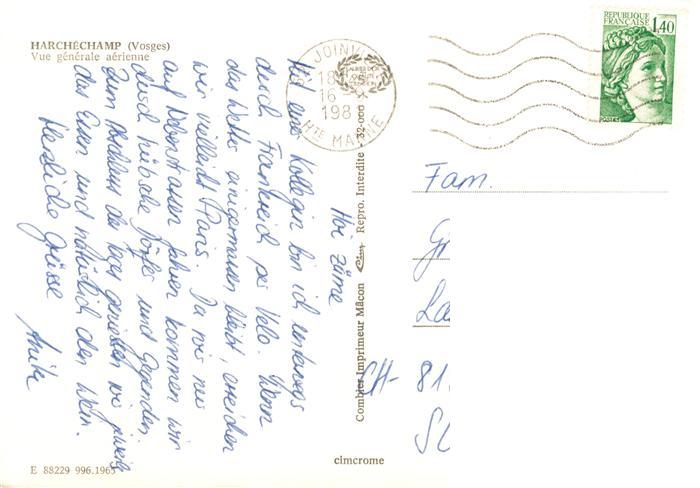 HARCHÉCHAMP (Vosges)
Vue générale aérienne
JOINVI
18
16
198
HTE MARNE
REPUBLIQUE FRANÇAISE
1,40
POSTES
Hoi zäme
Mit einer Kollegin bin ich unterwegs
durch Frankreich per Velo. Wenn
das Wetter einigermassen bleibt, erreichen
wir vielleicht Paris. Da wir nur
auf Nebenstrassen fahren kommen wir
durch hübsche Dörfer und Gegenden.
Zum Abschluss des Tages geniessen wir jeweils
das Essen und natürlich den Wein.
Herzliche Grüsse
Combier Imprimeur Mâcon Cim Repro. Interdite - 32-000
Fam.
G
La
CH- 81
cimcrome
E 88229 996.1965